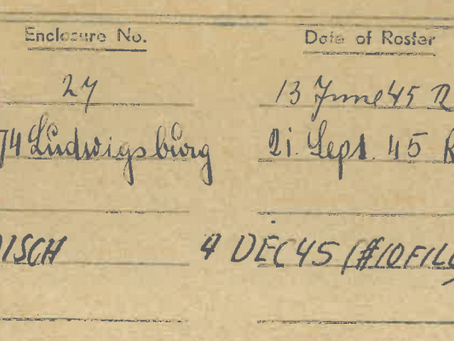 Enclosure No. Date of Roster
27 13 June 45 R
74 Ludwigsburg 21. Sept. 45 R
ISCH 4 DEC 45 (#10FILE